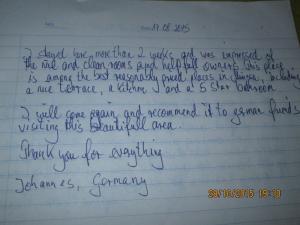 17.08.2015
I stayed here more than 2 weeks and was impressed of
the nice and clean rooms and helpfull owners. This place
is among the best reasonably priced places in, including
a nice terrace, a kitchen and a 5 Star bathroom
I will come again and recommend it to german friends
visiting this beautifull area.
Thank you for everything
Johannes, Germany
29/10/2015 19:10